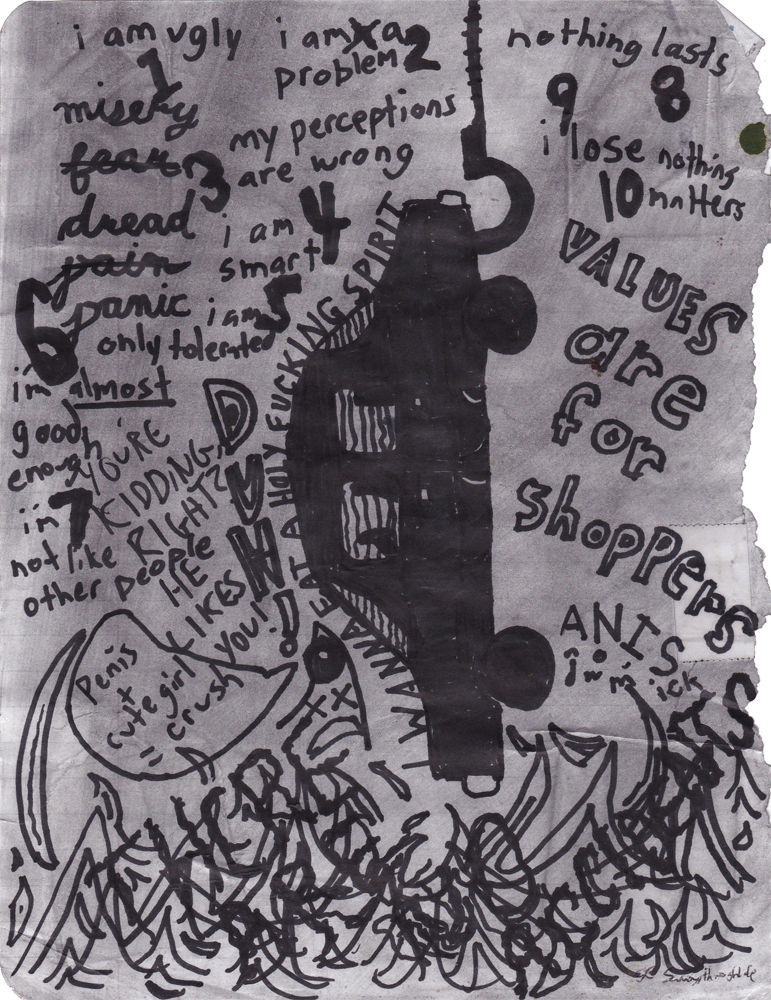 i am ugly
1
i am a
problem 2
nothing lasts
9 8
misery
fear
my perceptions
3 are wrong
i lose nothing
10 matters
dread
i am 4
smart
pain
6 panic
i am 5
only tolerated
i'm almost
good
enough
7
i'm
not like
other people
YOU'RE
KIDDING,
RIGHT?
HE
LIKES
YOU!
DUH!
I WANNA EAT A HOLY FUCKING SPIRIT
VALUES
are
for
shoppers
Penis
+
cute girl
=
crush
XX